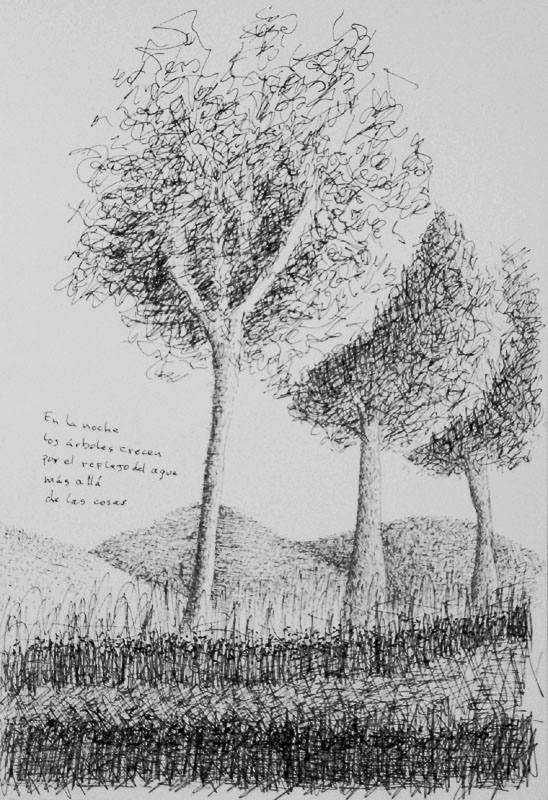 En la noche
los árboles crecen
por el reflejo del agua
más allá
de las cosas